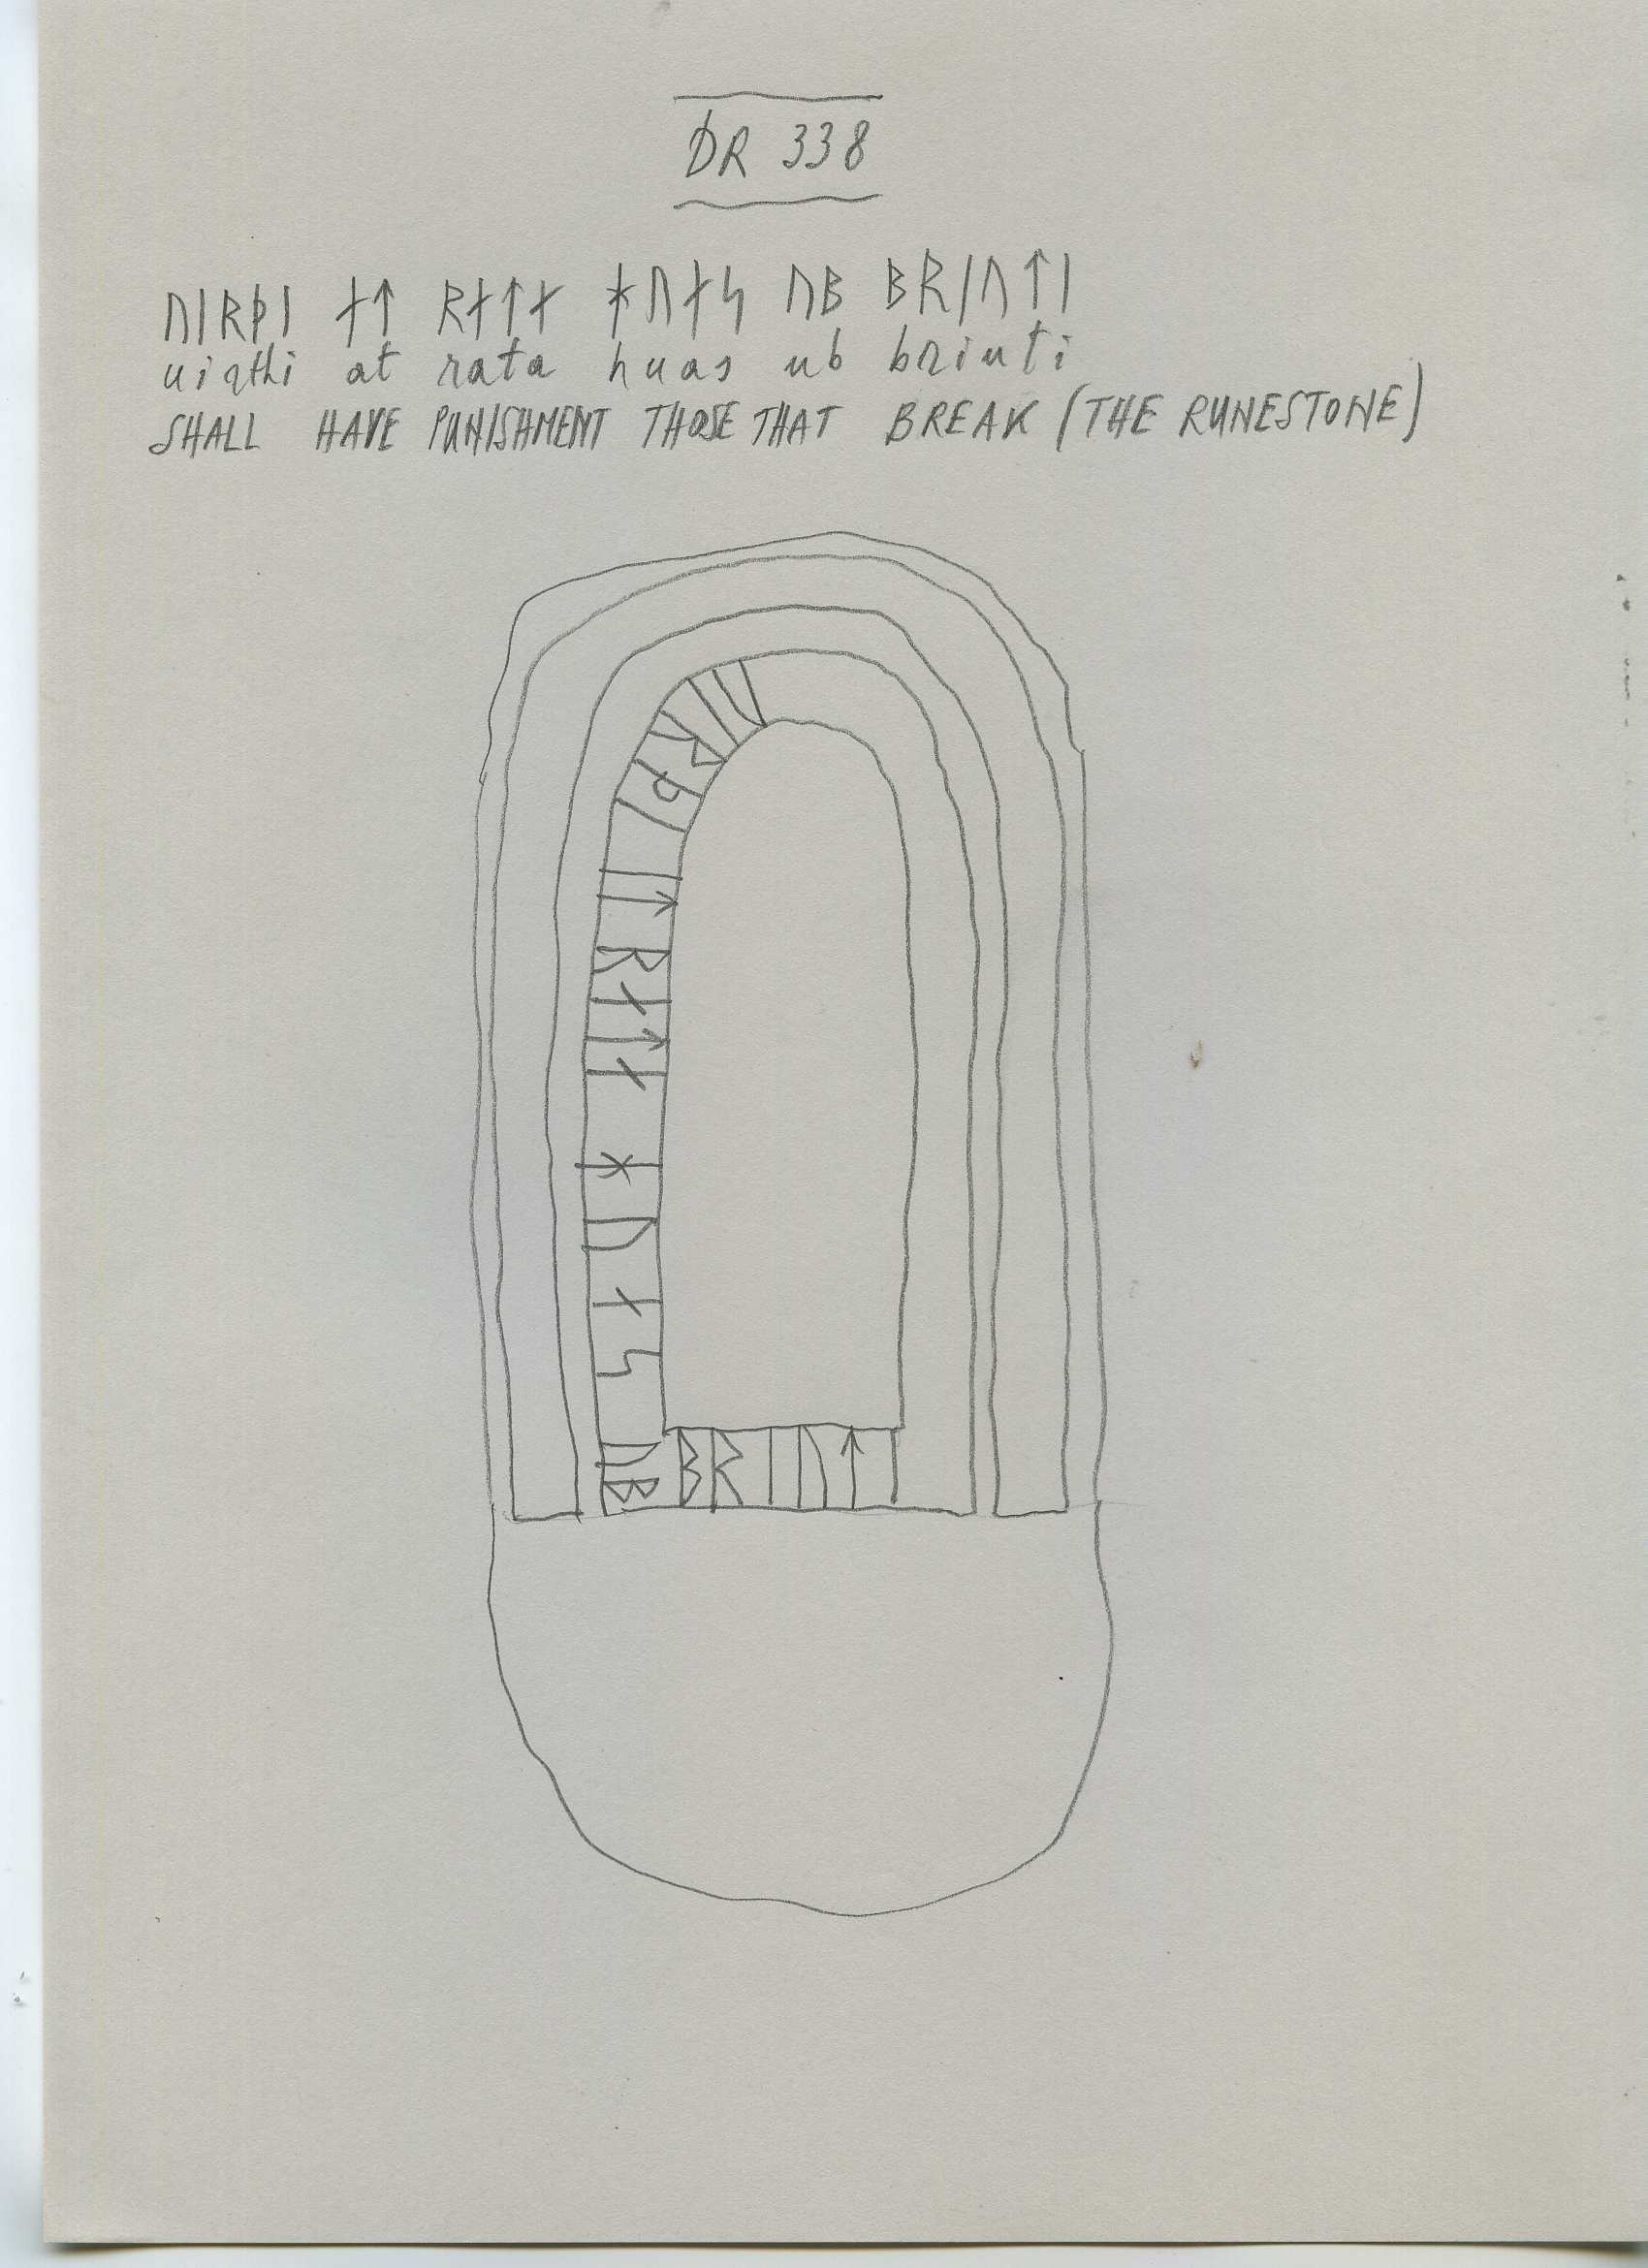 DR 338
ᚢᛁᚱᚦᛁ ᛅᛏ ᚱᛅᛏᛅ ᚼᚢᛅᛋ ᚢᛒ ᛒᚱᛁᚢᛏᛁ
uirthi at rata huas ub briuti
SHALL HAVE PUNISHMENT THOSE THAT BREAK (THE RUNESTONE)
ᚢᛁᚱᚦᛁ ᛁᛏ ᚱᛅᛏᛅ ᚼᚢᛅᛋ ᚢᛒ ᛒᚱᛁᚢᛏᛁ